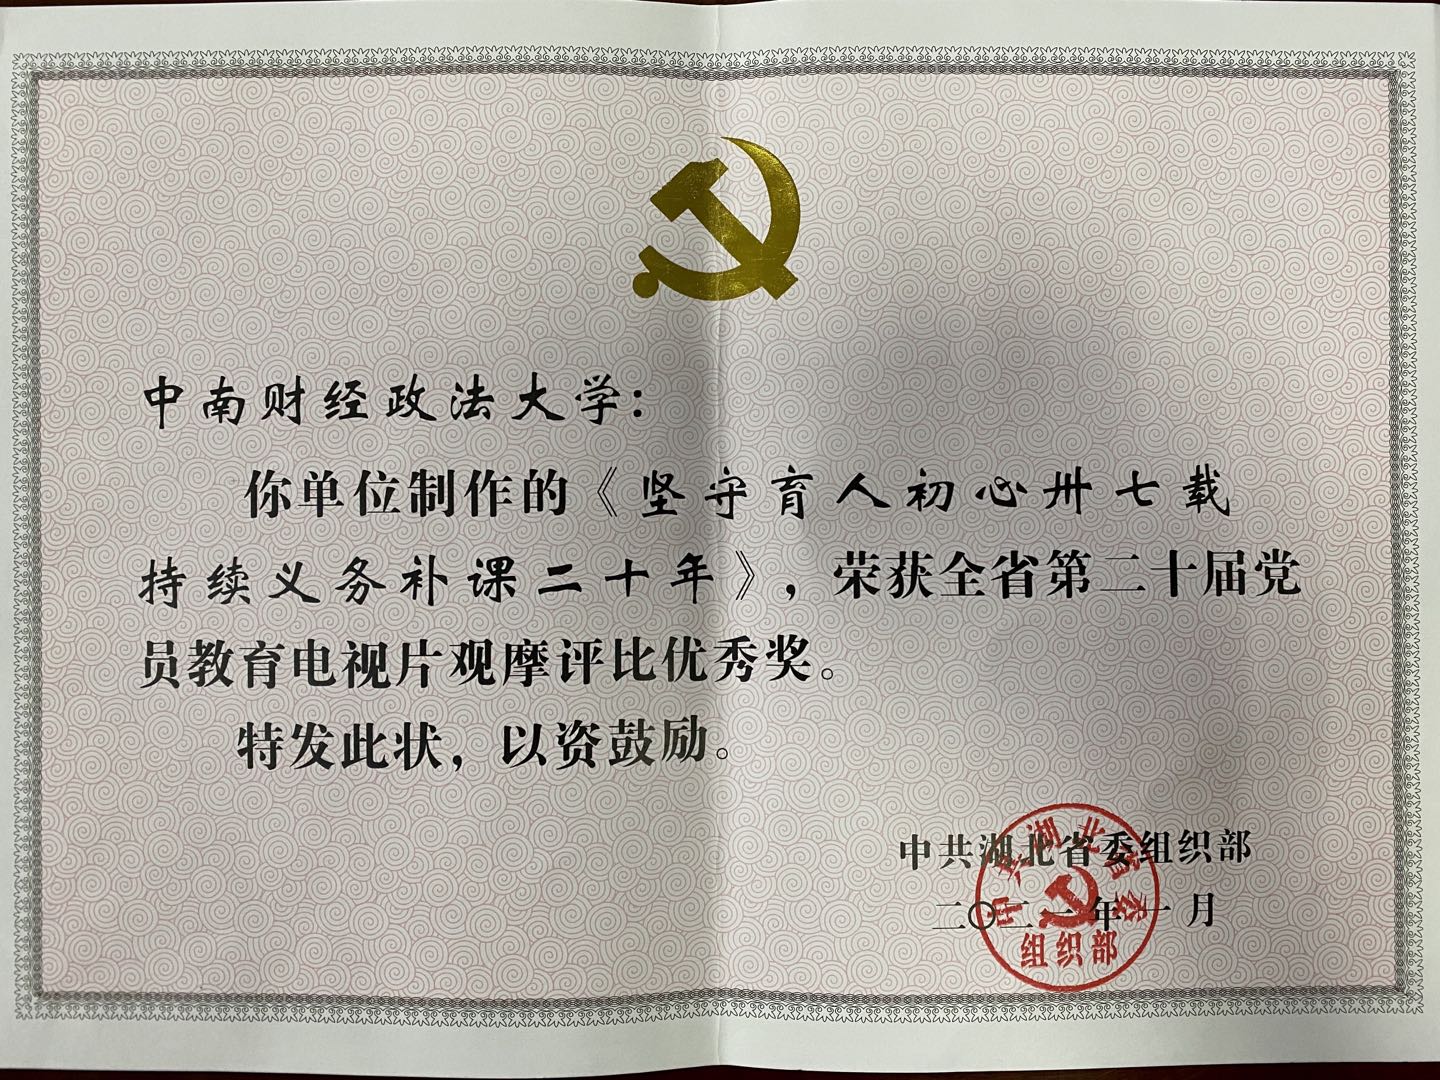 中南财经政法大学：
你单位制作的《坚守育人初心卅七载
持续义务补课二十年》，荣获全省第二十届党
员教育电视片观摩评比优秀奖。
特发此状，以资鼓励。
中共湖北省委组织部
二〇二一年一月
中共湖北省委
组织部